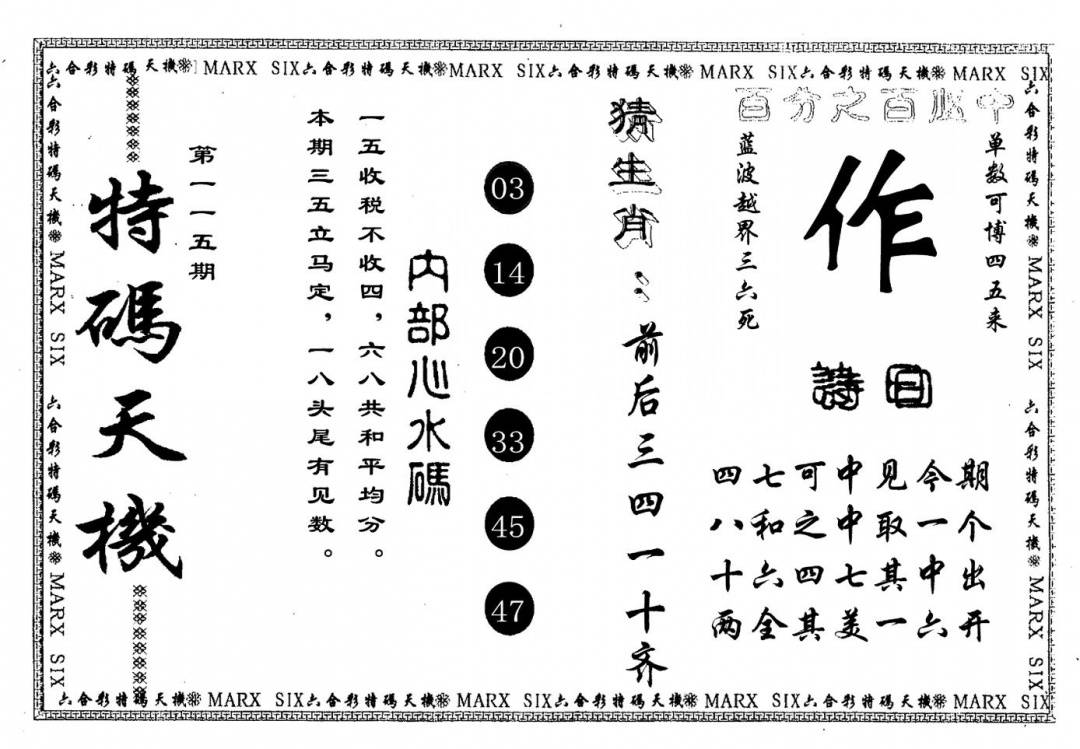 六合彩特碼天機※MARX SIX六合彩特碼天機※MARX SIX六合彩特碼天機※MARX SIX六合彩特碼天機※MARX SIX
六合彩特碼天機※MARX SIX 六合彩特碼天機※MARX SIX
百分之百必中
单数可博四五来
作
蓝波越界三六死
詩曰
四七可中见今期
八和之中取一个
十六四七其中出
两全其美一六开
猜生肖：前后三四一十齐
03
14
20
33
45
47
内部心水碼
一五收税不收四，六八共和平均分。
本期三五立马定，一八头尾有见数。
第一一五期
特碼天機
六合彩特碼天機※MARX SIX 六合彩特碼天機※MARX SIX
六合彩特碼天機※MARX SIX六合彩特碼天機※MARX SIX六合彩特碼天機※MARX SIX六合彩特碼天機※MARX SIX